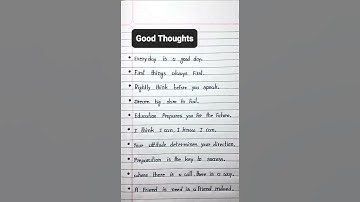 Good Thoughts
• Everyday is a good day.
• First things always first.
• Rightly think before you speak.
• Dream big dare to fail.
• Education Prepares you for the future.
• I think I can, I know I can.
• Your attitude determines your direction.
• Preparation is the key to success.
• where there is a will, there is a way.
• A friend in need is a friend indeed.